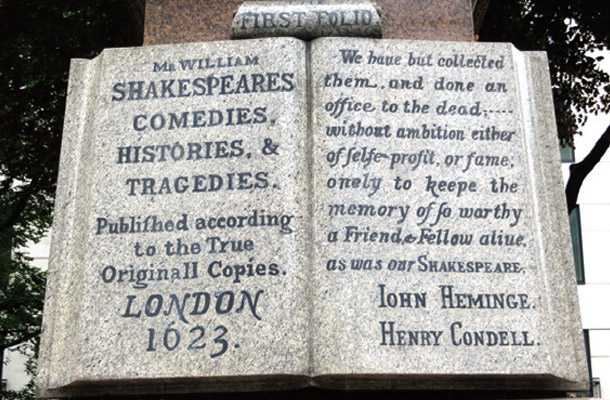 FIRST FOLIO
Mr WILLIAM
SHAKESPEARES
COMEDIES,
HISTORIES, &
TRAGEDIES.
Publiſhed according
to the True
Originall Copies.
LONDON
1623.
We haue but collected
them, and done an
office to the dead,....
without ambition either
of ſelfe-profit, or fame,
onely to keepe the
memory of ſo worthy
a Friend, & Fellow aliue,
as was our SHAKESPEARE.
IOHN HEMINGE.
HENRY CONDELL.